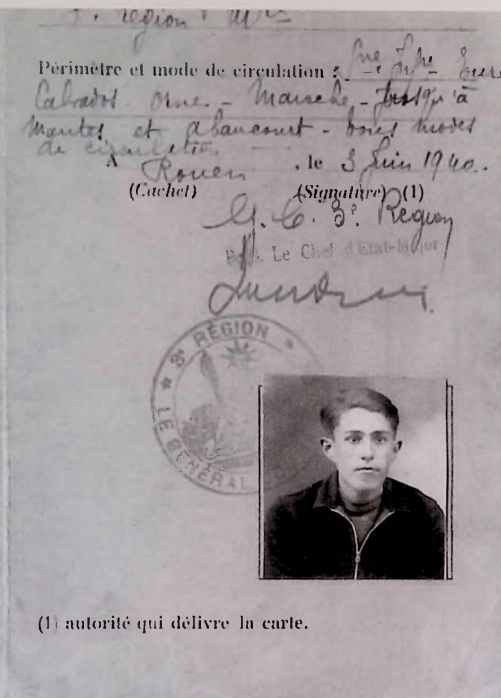 3e région
Périmètre et mode de circulation : Sne Infre Eure
Calvados - Orne - Manche - Jusqu'à
Mantes et Abancourt - tous modes
de circulation
A Rouen , le 3 Juin 1940.
(Cachet) (Signature) (1)
G. 3e Région
Le Chef d'État-Major
3e RÉGION
LE GÉNÉRAL
(1) autorité qui délivre la carte.